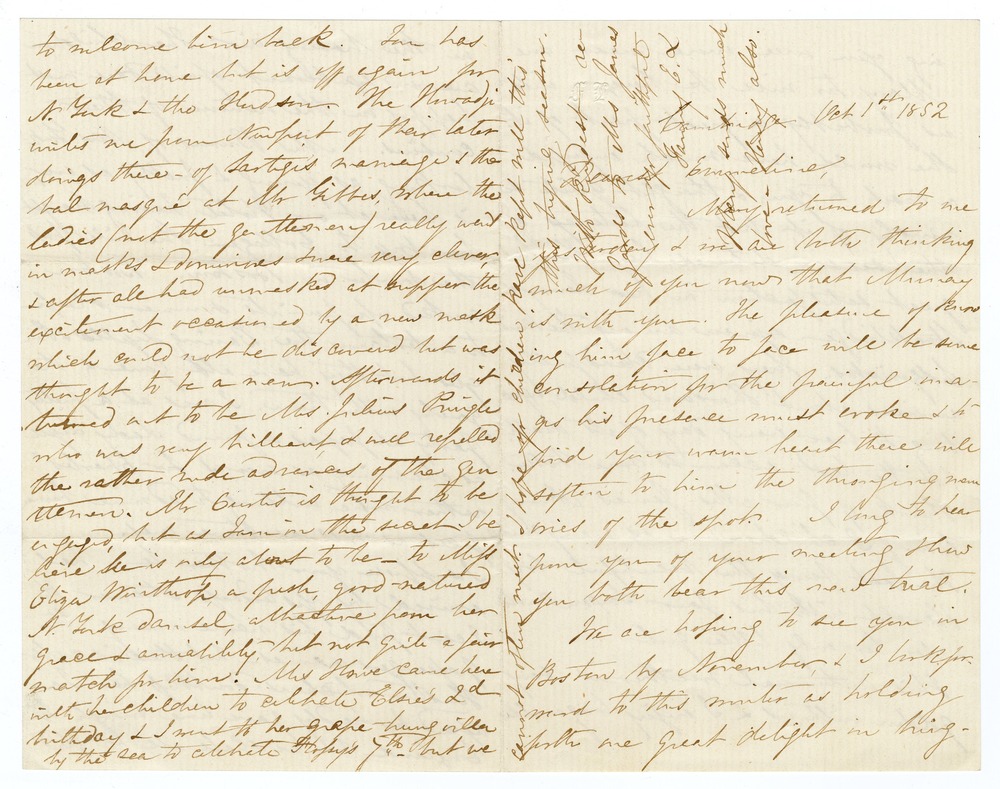 Cambridge Oct 1st 1852
Dearest Emmeline,
Mary returned to me
yesterday & we are both thinking
much of you now that Murray
is with you. The pleasure of know
ing him face to face will be some
consolation for the painful ima-
ges his presence must evoke & to
find your warm heart there will
soften to him the thronging mem
ories of the spot. I long to hear
from you of your meeting & how
you both bear this new trial.
We are hoping to see you in
Boston by November, & I look for-
ward to this winter as holding
forth one great delight in thing-
to welcome him back. Tom has
been at home but is off again for
N. York & the Hudson. The Howadji
writes me from Newport of their later
doings there - of Sartiges marriage & the
bal masqué at Mr Gibbes, where the
ladies (not the gentlemen) really went
in masks & dominoes & were very clever
& after all had unmasked at supper the
excitement occasioned by a new mask
which could not be discovered but was
thought to be a man. Afterwards it
turned out to be Mrs. Julius Pringle
who was very brilliant, & well repelled
the rather rude advances of the gen
tlemen. Mr Curtis is thought to be
engaged, but as I am in the secret I be
lieve he is only about to be - to Miss
Eliza Winthrop, a fresh, good-natured
N. York damsel, attractive from her
grace & amiability, but not quite a fair
match for him. Mrs Howe came here
with her children to celebrate Elsie's 2d
birthday & I went to her grape-hung villa
by the sea to celebrate 7th - but we
cannot often meet. I hope yr children have kept well this
this trying season.
With kindest re-
gards to Mrs James
ever yr faithful
Fanny E. L.
Mary sends much
love - Henry also.